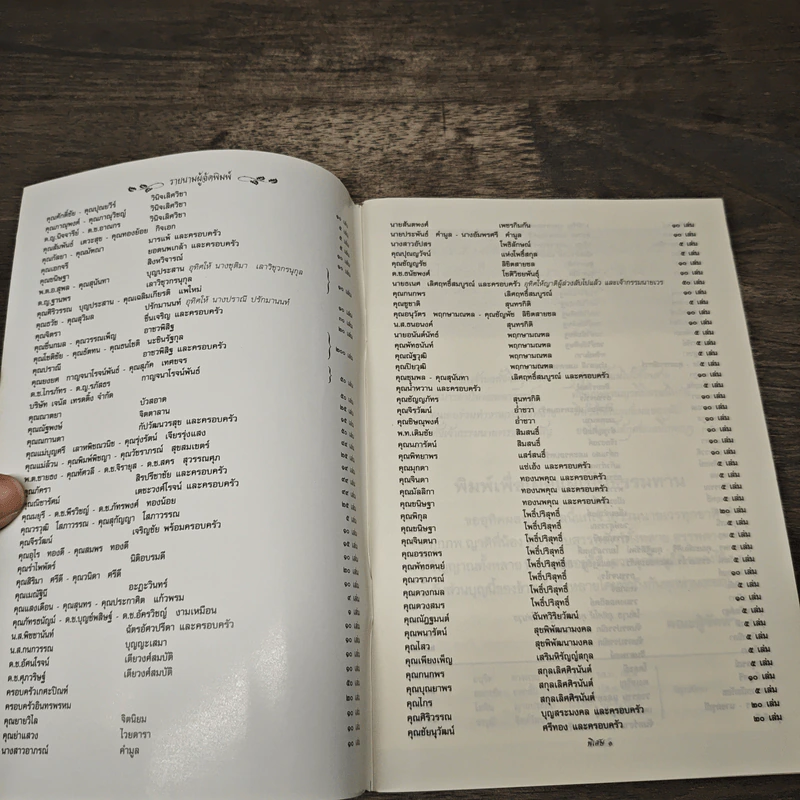 รายนามผู้จัดพิมพ์
คุณศักดิ์ชัย - คุณปุณยวีร์ วินิจเลิศวิชา
คุณภาณุพงศ์ - คุณภาณุวิชญ์ วินิจเลิศวิชา
วินิจเลิศวิชา
คุณสัมพันธ์ เตวะสุข - คุณทองย้อย กิจเอก
คุณกัลยา - คุณมัคณา มารแพ้ และครอบครัว
คุณเอกจรี ยอดนพเกล้า และครอบครัว
คุณชนิษฐา สิงหวิจารณ์
พ.ต.อ.สุพล - คุณสุนันทา บุญประสาน อุทิศให้ นางชุติมา เลาวิชุวกรนุกูล
ด.ญ.ฐานพร เลาวิชุวกรนุกูล
คุณศิริวรรณ บุญประสาน - คุณเฉลิมเกียรติ แพไหม่
คุณธวัช - คุณสุวิมล ปรักมานนท์ อุทิศให้ นางปราณี ปรักมานนท์
คุณจิตรา ชื่นเจริญ และครอบครัว
คุณชื่นกมล - คุณวรรณเพ็ญ อาชวพิสิฐ
คุณโชติชัย - คุณธัดทน - คุณธนโชติ นะชินรัฐกูล
คุณปราณี อาชวพิสิฐ และครอบครัว
คุณยงยศ กาญจนาโรจน์พันธ์ - คุณสุภัค เทศขจร
ด.ช.ไกรภัทร - ด.ญ.รภัสธร กาญจนาโรจน์พันธ์
บริษัท เจนัส เทรดดิ้ง จำกัด
คุณนาตยา บัวสอาด
คุณณัฐพงษ์ จิตตาลาน
คุณณกานดา กัปวัฒนวรสุข และครอบครัว
คุณแม่บุญศรี เลาหพิชฌวนิช - คุณรุ่งรัตน์ เจียรรุ่งแสง
คุณแม่ล้วน - คุณพิมพ์พิชญา - คุณวัชราภรณ์ สุขสมเชตร์
พ.ต.ชายธง - คุณทัศวลี - ด.ช.จิรายุส - ด.ช.สคร สุวรรณศุภ
คุณภัครา สิรปรีชาชัย และครอบครัว
คุณณิชารัศม์ เตชะวงค์โรจน์ และครอบครัว
คุณมยุรี - ด.ช.พีรวิชญ์ - ด.ช.ภัทรพงศ์ ทองน้อย
คุณวรวุฒิ โสภาวรรณ - คุณสุกัญญา โสภาวรรณ
คุณจีรวัฒน์ เจริญชัย พร้อมครอบครัว
คุณอุไร ทองดี - คุณสมพร ทองดี
คุณรำไพพัตร์ นิติอบรมดี
คุณสิริมา ศรีดี - คุณวนิดา ศรีดี
คุณเมณิฐินี อะฎะวินทร์
คุณแสงเดือน - คุณสุนทร - คุณประกาศิต แก้วพรม
คุณภัทรธนัญม์ - ด.ช.บุญชัพสิษฐ์ - ด.ช.อัตรวิชญ์ งามเหมือน
น.ส.พิชชานันท์ ฉัตรอัศวปรีดา และครอบครัว
น.ส.กนกวรรณ บุญญะเสมา
ด.ช.อัศนโรจน์ เตียวงศ์สมบัติ
ด.ช.ศุภวริษฐ์ เตียวงศ์สมบัติ
ครอบครัวเกศะปัณฑ์
ครอบครัวอินทรพรหม
คุณชายวิไล จิตนิยม
คุณย่าแสวง ไวยดารา
นางสาวอาภรณ์ คำมูล
นายสันตพงศ์ เพชรกิมกัน ๑๐ เล่ม
นายประพันธ์ คำมูล - นางอัมพรศรี คำมูล ๑๐ เล่ม
นางสาวอัปสร โพธิลักษณ์ ๕ เล่ม
คุณปุณญวัจน์ แห่งโพธิ์สกุล ๕ เล่ม
คุณชัญญรัช ลิขิตสายชล ๑๐ เล่ม
ด.ช.ธนัชพงษ์ โชติวิชยพันธุ์ ๑๐ เล่ม
นายธเนศ เลิศฤทธิ์สมบูรณ์ และครอบครัว อุทิศให้ญาติผู้ล่วงลับไปแล้ว และเจ้ากรรมนายเวร ๕๐ เล่ม
คุณกนกพร เลิศฤทธิ์สมบูรณ์ ๑๐ เล่ม
คุณชูชาติ สุนทรกิติ ๕ เล่ม
คุณอนุวัตร พฤกษามณฑล - คุณชัญพัช ลิขิตสายชล ๑๐ เล่ม
น.ส.ธนอนงค์ สุนทรกิติ ๕ เล่ม
นายอนันต์นัทธ์ พฤกษามณฑล ๑๐ เล่ม
คุณพัทธนันท์ พฤกษามณฑล ๕ เล่ม
คุณณัฐวุฒิ พฤกษามณฑล ๕ เล่ม
คุณปิยวุฒิ พฤกษามณฑล ๕ เล่ม
คุณชุมพล - คุณสุนันทา เลิศฤทธิ์สมบูรณ์ และครอบครัว ๑๐ เล่ม
คุณน้ำหวาน และครอบครัว ๕ เล่ม
คุณชัญญภัทร สุนทรกิติ ๕ เล่ม
คุณจิรวัฒน์ อ่ำขวา ๕ เล่ม
คุณชิษณุพงศ์ อ่ำขวา ๑๐ เล่ม
พ.ท.เติมชัย สิมสนธิ์ ๑๐ เล่ม
คุณนภารัตน์ สิมสนธิ์ ๑๐ เล่ม
คุณพิทยาพร แสร์สนธิ์ ๑๐ เล่ม
คุณมุกดา แซ่เฮ้ง และครอบครัว ๕ เล่ม
คุณจินดา ทองนพคุณ และครอบครัว ๕ เล่ม
คุณมัลลิกา ทองนพคุณ และครอบครัว ๕ เล่ม
คุณขนิษฐา ทองนพคุณ และครอบครัว ๕ เล่ม
คุณพิกุล โพธิ์ปริสุทธิ์ ๒๐ เล่ม
คุณชนิษฐา โพธิ์ปริสุทธิ์ ๕ เล่ม
คุณจินตนา โพธิ์ปริสุทธิ์ ๕ เล่ม
คุณอรรถพร โพธิ์ปริสุทธิ์ ๕ เล่ม
คุณพัทธดนย์ โพธิ์ปริสุทธิ์ ๕ เล่ม
คุณวราภรณ์ โพธิ์ปริสุทธิ์ ๑๐ เล่ม
คุณดวงกมล โพธิ์ปริสุทธิ์ ๕ เล่ม
คุณดวงสมร โพธิ์ปริสุทธิ์ ๑๐ เล่ม
คุณณัฏฐมนต์ ฉันทวิริยวัฒน์ ๕ เล่ม
คุณพนารัตน์ สุขพิพัฒนามงคล ๕ เล่ม
คุณไสว สุขพิพัฒนามงคล ๕ เล่ม
คุณเพียงเพ็ญ เสริมหิรัญญ์สกุล ๕ เล่ม
คุณกนกพร สกุลเลิศศิรนันต์ ๕ เล่ม
คุณบุณยาพร สกุลเลิศศิรนันต์ ๑๐ เล่ม
คุณไกร สกุลเลิศศิรนันต์ ๕ เล่ม
คุณศิริวรรณ บุญสระนงคล และครอบครัว ๒๐ เล่ม
คุณชัยนุวัฒน์ ศรีทอง และครอบครัว ๒๐ เล่ม
พิเศษ ๑